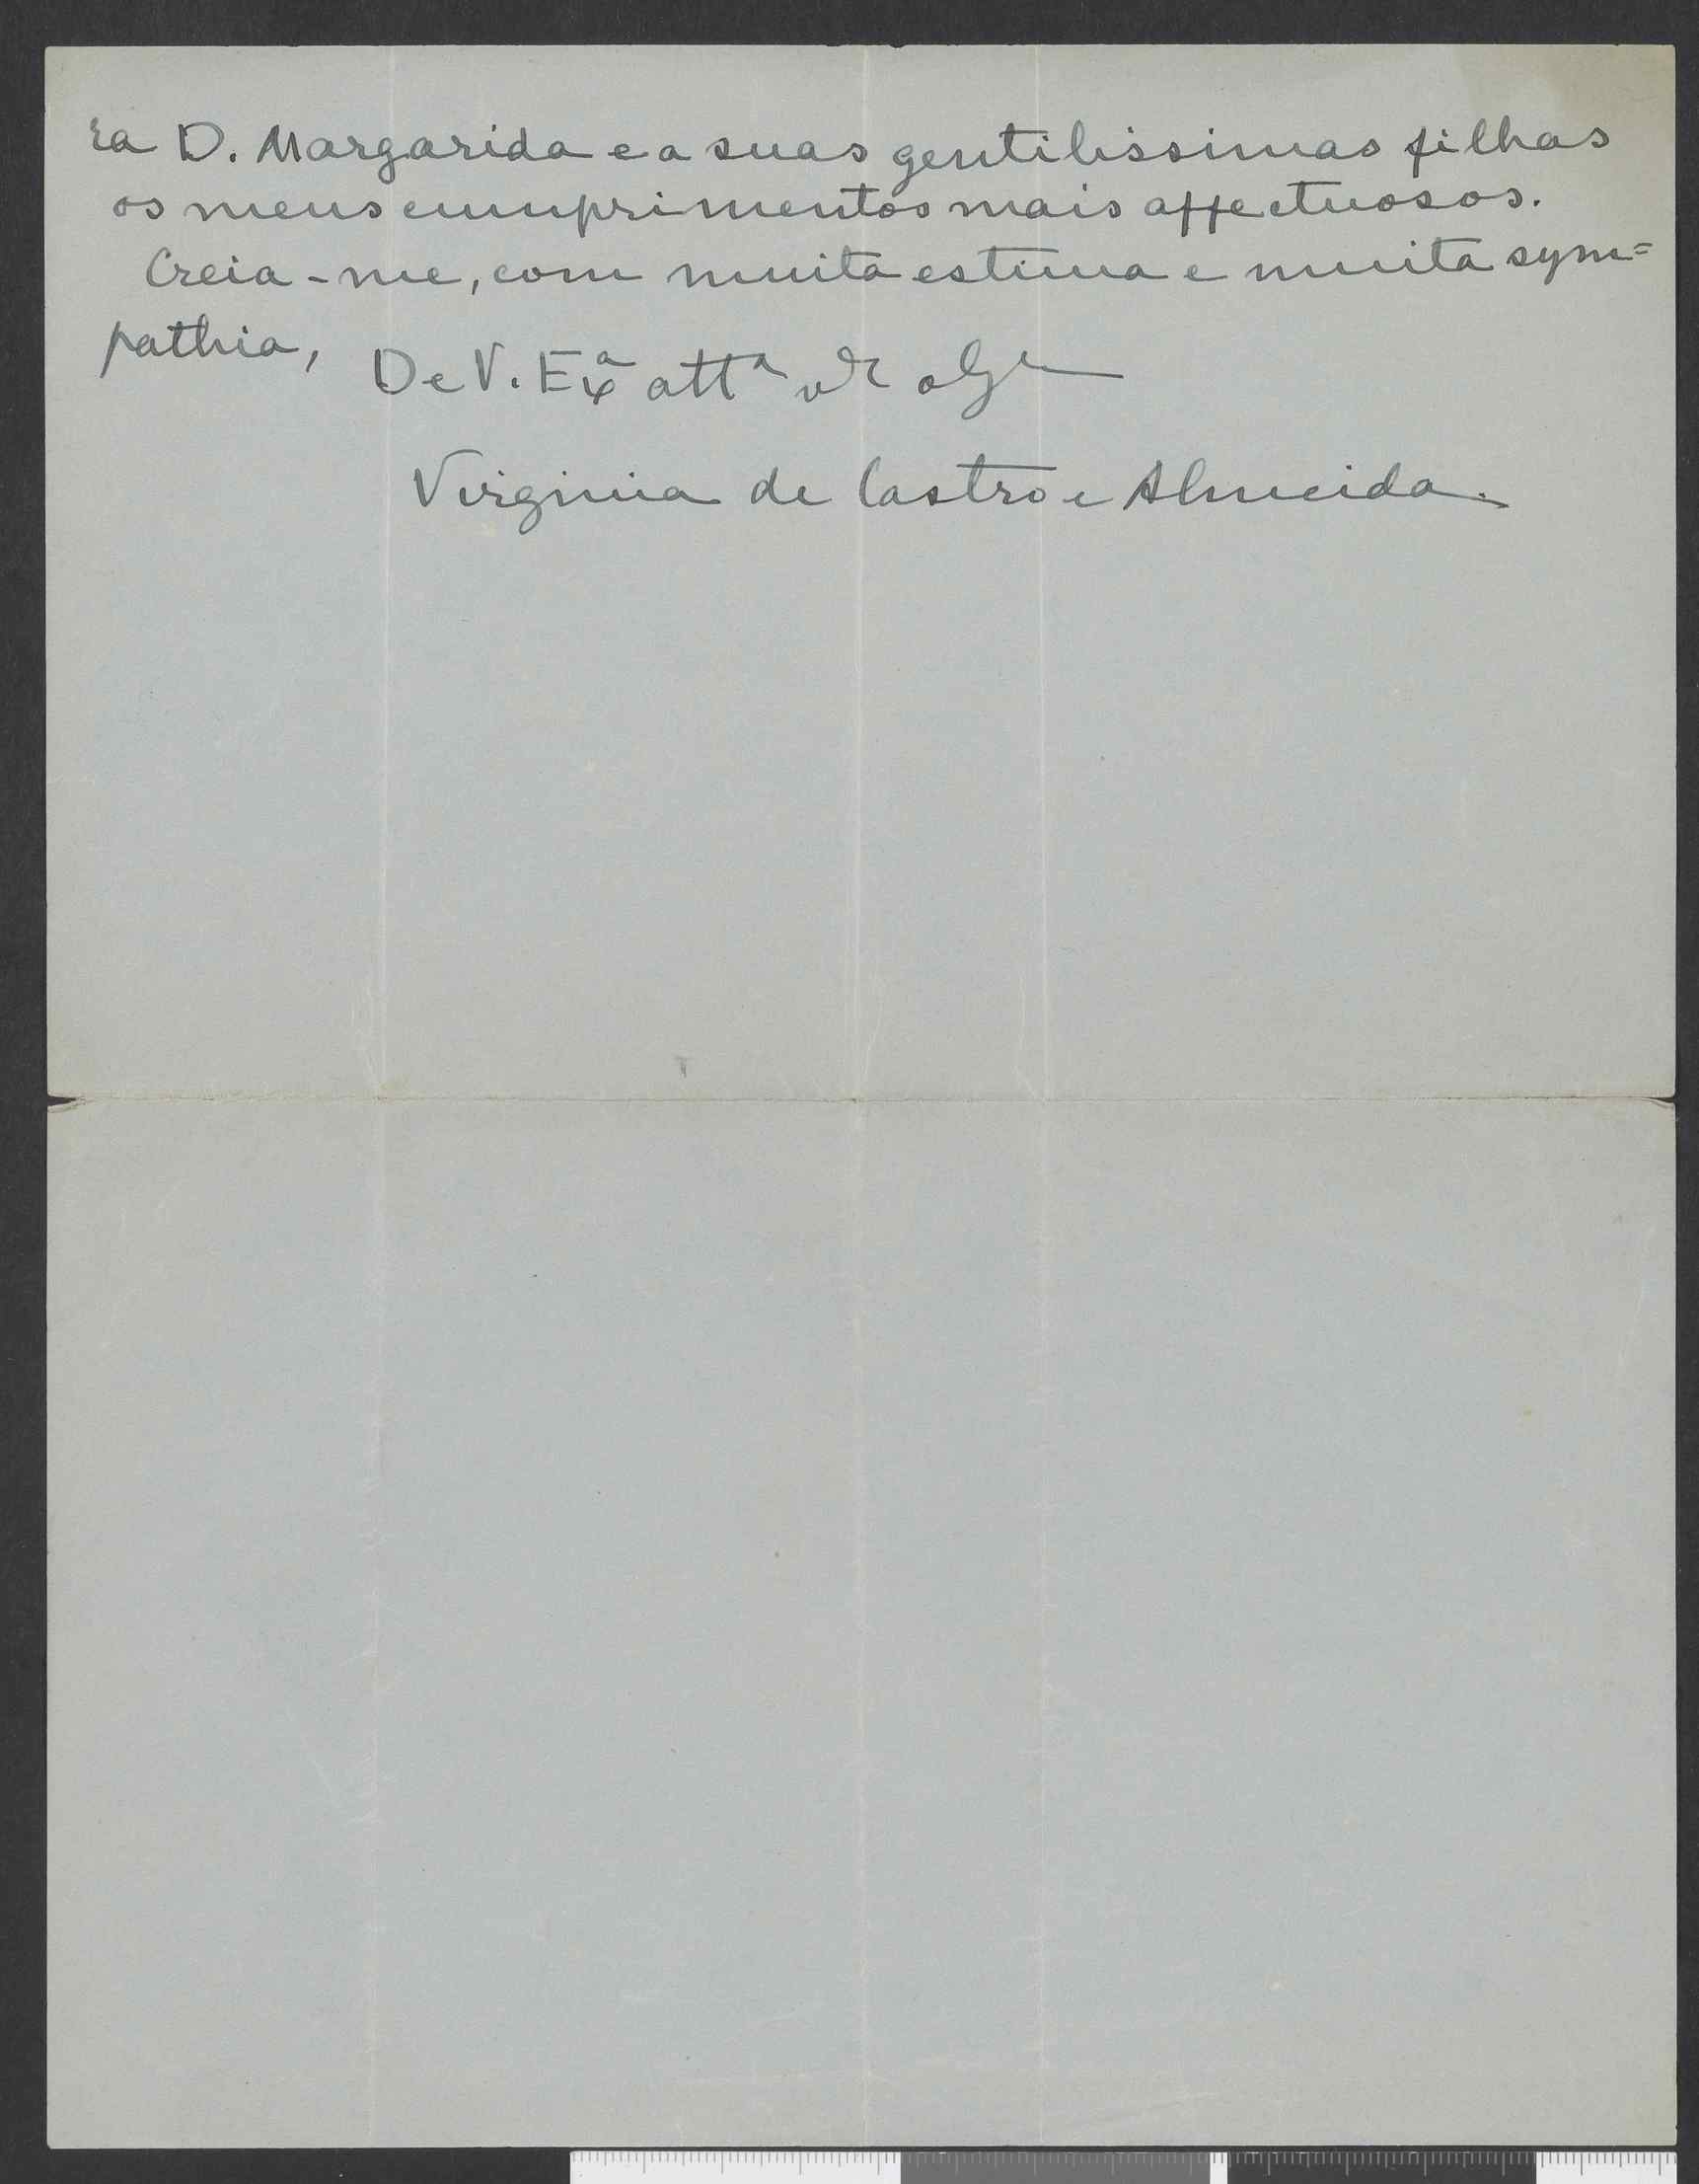 ra D. Margarida e a suas gentilissimas filhas
os meus cumprimentos mais affectuosos.
Creia-me, com muita estima e muita sym=
pathia,
De V. Exª attª vra obgda
Virginia de Castro e Almeida.